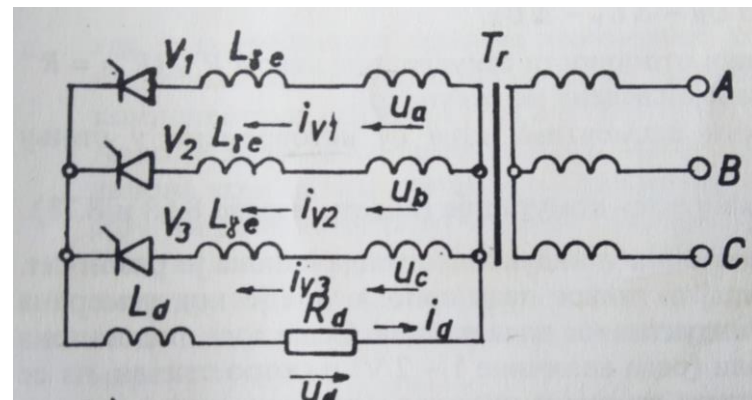 V1 Lγe Tr A
iV1 ua
V2 Lγe B
iV2 ub
V3 Lγe C
iV3 uc
Ld Rd id
ud